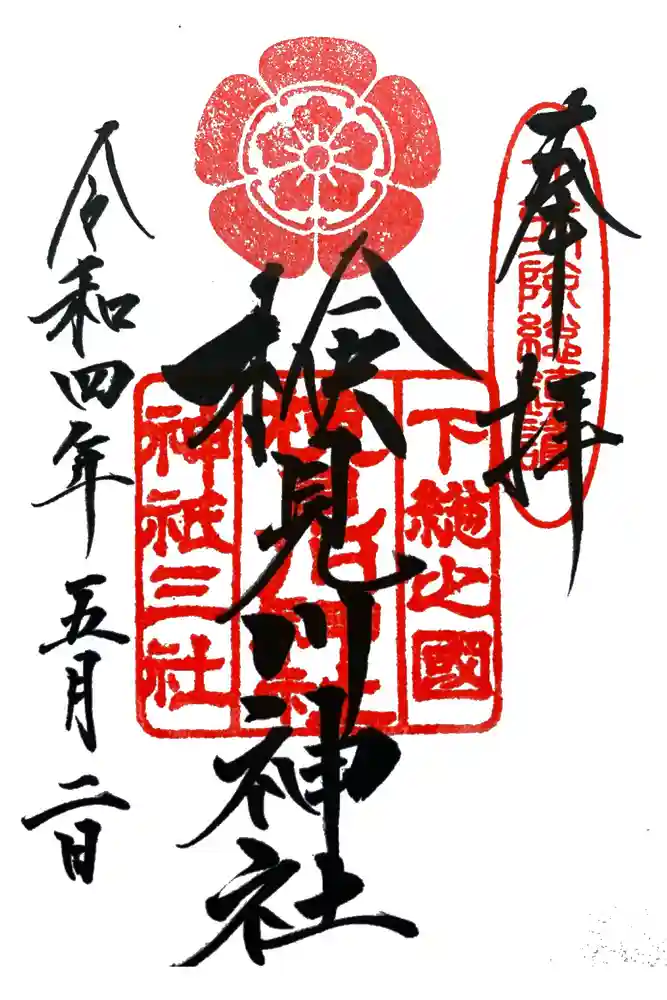 奉拝
下総之國
検見川神社
神祇三社
令和四年五月二日